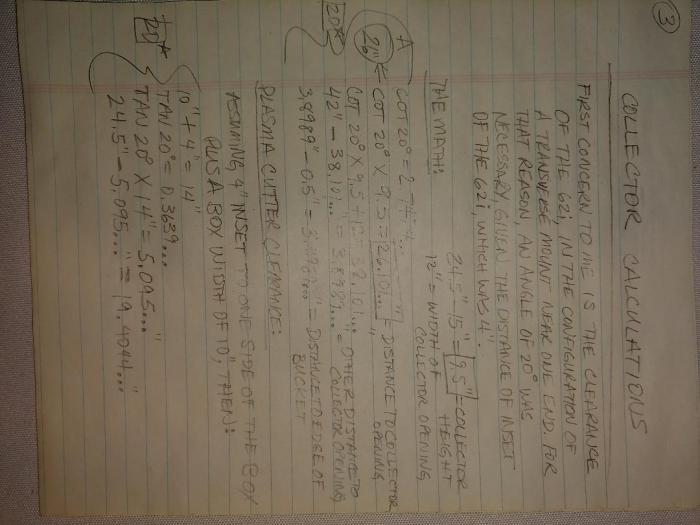 ③
COLLECTOR CALCULATIONS
FIRST CONCERN TO ME IS THE CLEARANCE
OF THE 62i, IN THE CONFIGURATION OF
A TRANSVERSE MOUNT NEAR ONE END. FOR
THAT REASON AN ANGLE OF 20° WAS
NECESSARY, GIVEN THE DISTANCE OF INSET
OF THE 62i, WHICH WAS 4".
24.5" - 15" = 9.5" = COLLECTOR HEIGHT
THE MATH:
12" = WIDTH OF COLLECTOR OPENING
A
COT 20° = 2.74...
26" COT 20° X 9.5 = 26.10..." = DISTANCE TO COLLECTOR OPENING
COT 20° X 9.5 + 12 = 38.10..." = OTHER DISTANCE TO COLLECTOR OPENING
20* 42" - 38.10..." = 3.8989..."
3.8989" - 0.5" = = DISTANCE TO EDGE OF BUCKET
PLASMA CUTTER CLEARANCE:
ASSUMING 4" INSET TO ONE SIDE OF THE BOX
PLUS A BOX WIDTH OF 10", THEN:
10" + 4" = 14"
TAN 20° = 0.3639...
20* TAN 20° X 14" = 5.095..."
24.5" - 5.095..." = 19.4044..."